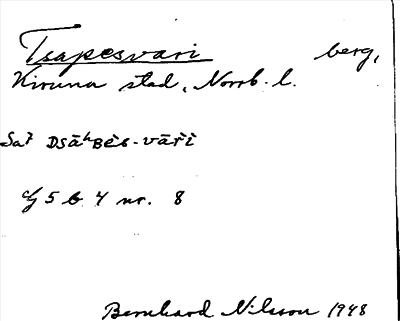 Tsapesvari berg,
Kiruna stad, Norrb. l.
Sa7 DSāʰBės-vāřì
cf 5 b 4 nr. 8
Bernhard Nilsson 1948